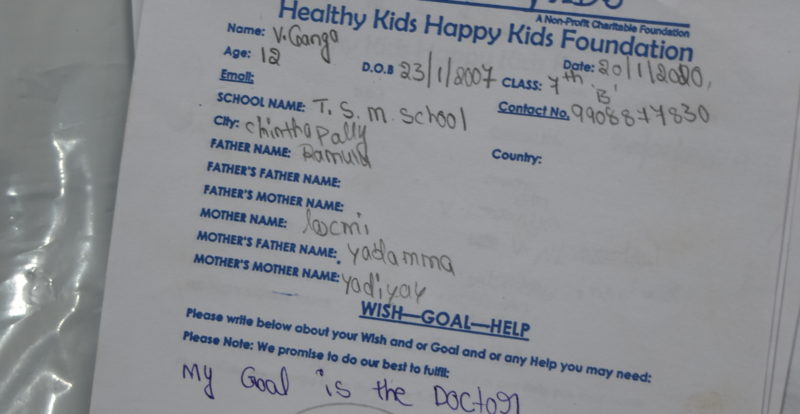 A Non-Profit Charitable Foundation
Healthy Kids Happy Kids Foundation
Name: V. Ganga
Age: 12 D.O.B 23/1/2007 CLASS: 7th 'B' Date: 20/1/2020,
Email:
SCHOOL NAME: T. S. m. School Contact No. 9908877830
City: chinthapally
FATHER NAME: Ramulu Country:
FATHER'S FATHER NAME:
FATHER'S MOTHER NAME:
MOTHER NAME: laxmi
MOTHER'S FATHER NAME: yadamma
MOTHER'S MOTHER NAME: yadiyay
WISH—GOAL—HELP
Please write below about your Wish and or Goal and or any Help you may need:
Please Note: We promise to do our best to fulfil:
My Goal is the Doctor